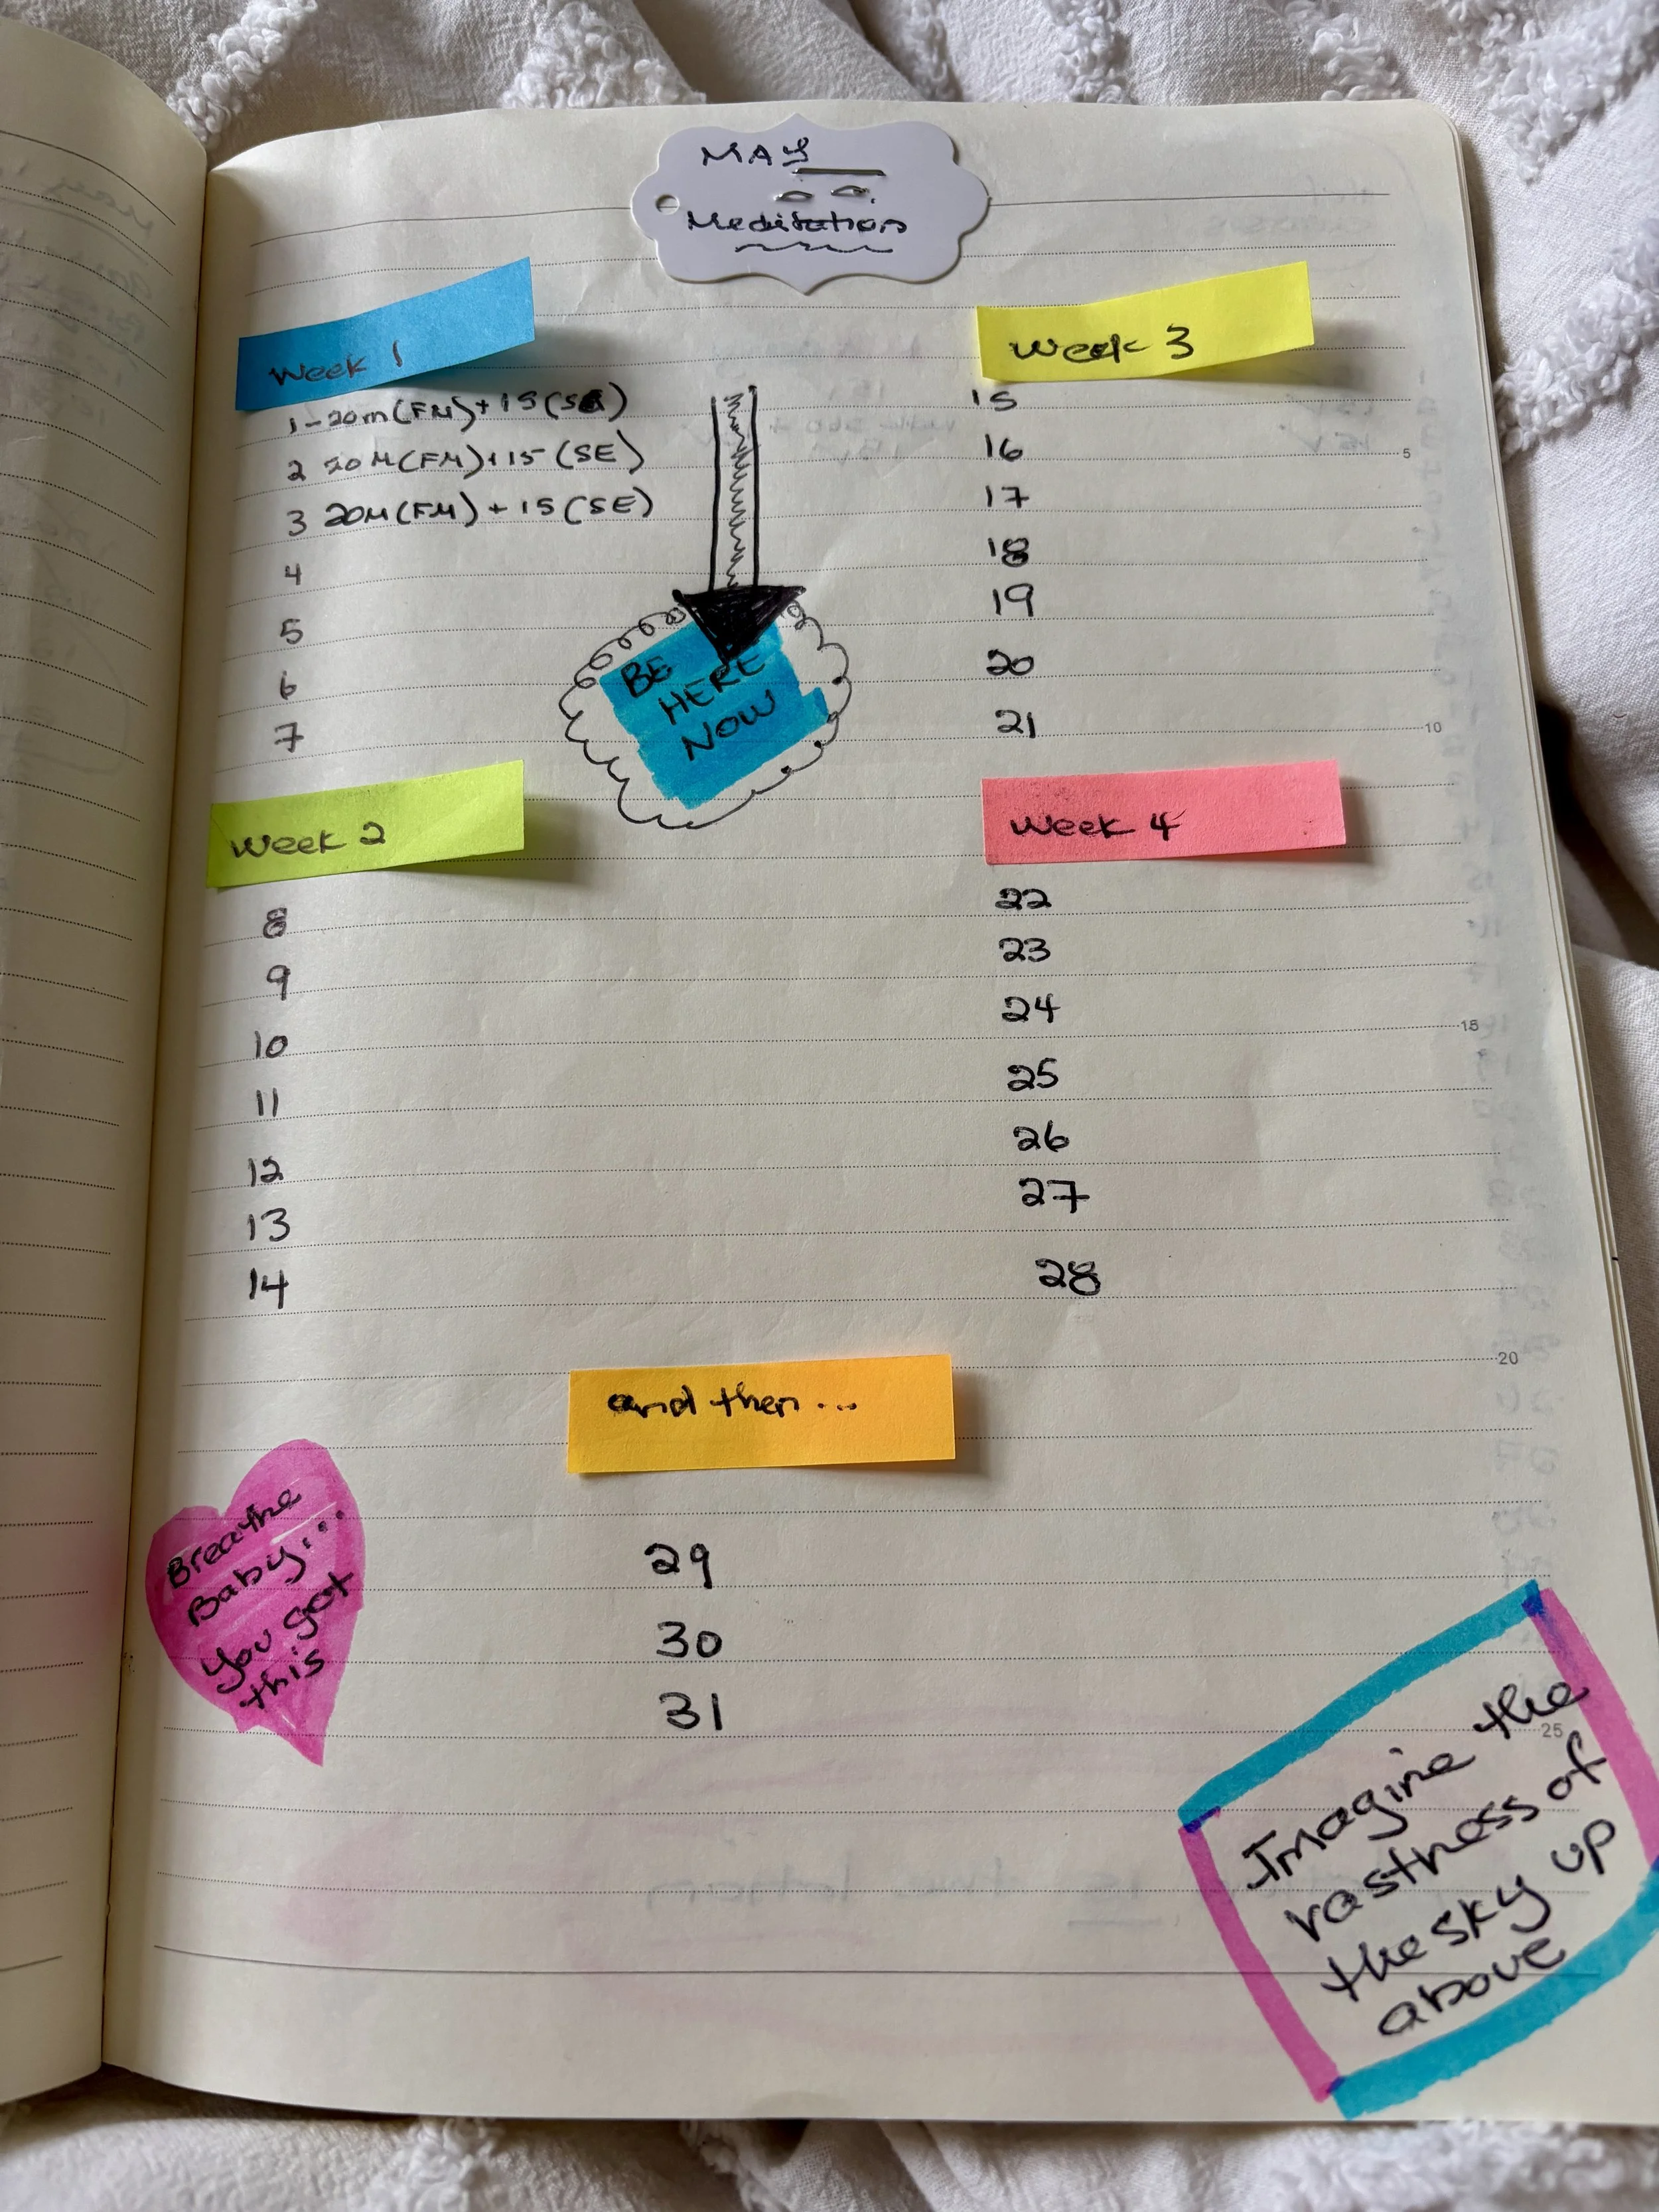 MAY
Meditation
Week 1
1-20m(FM)+15(SE)
2 20M(FM)+15(SE)
3 20M(FM)+15(SE)
4
5
6
7
BE
HERE
NOW
Week 2
8
9
10
11
12
13
14
Week 3
15
16
17
18
19
20
21
Week 4
22
23
24
25
26
27
28
and then...
29
30
31
Breathe
Baby...
you got
this
Imagine the
vastness of
the sky up
above
5
10
15
20
25